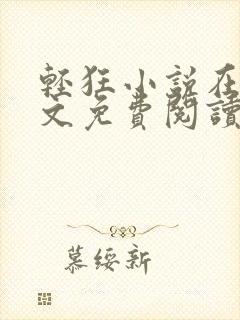 輕狂小說在
文免費閱讀
慕綏新